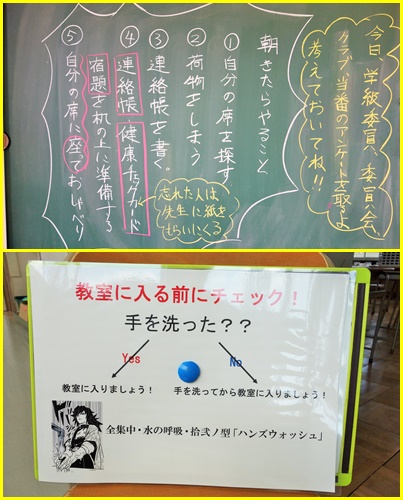 今日、学級委員、委員会、
クラブ、当番のアンケートを取るよ
考えておいてね!!
朝きたらやること
①自分の席を探す
②荷物をしまう
③連絡帳を書く。
④連絡帳、健康チェックカード
宿題を机の上に準備する
忘れた人は
先生に紙を
もらいにくる
⑤自分の席に座っておしゃべり
教室に入る前にチェック!
手を洗った??
Yes
No
教室に入りましょう!
手を洗ってから教室に入りましょう!
全集中・水の呼吸・拾弐ノ型「ハンズウォッシュ」